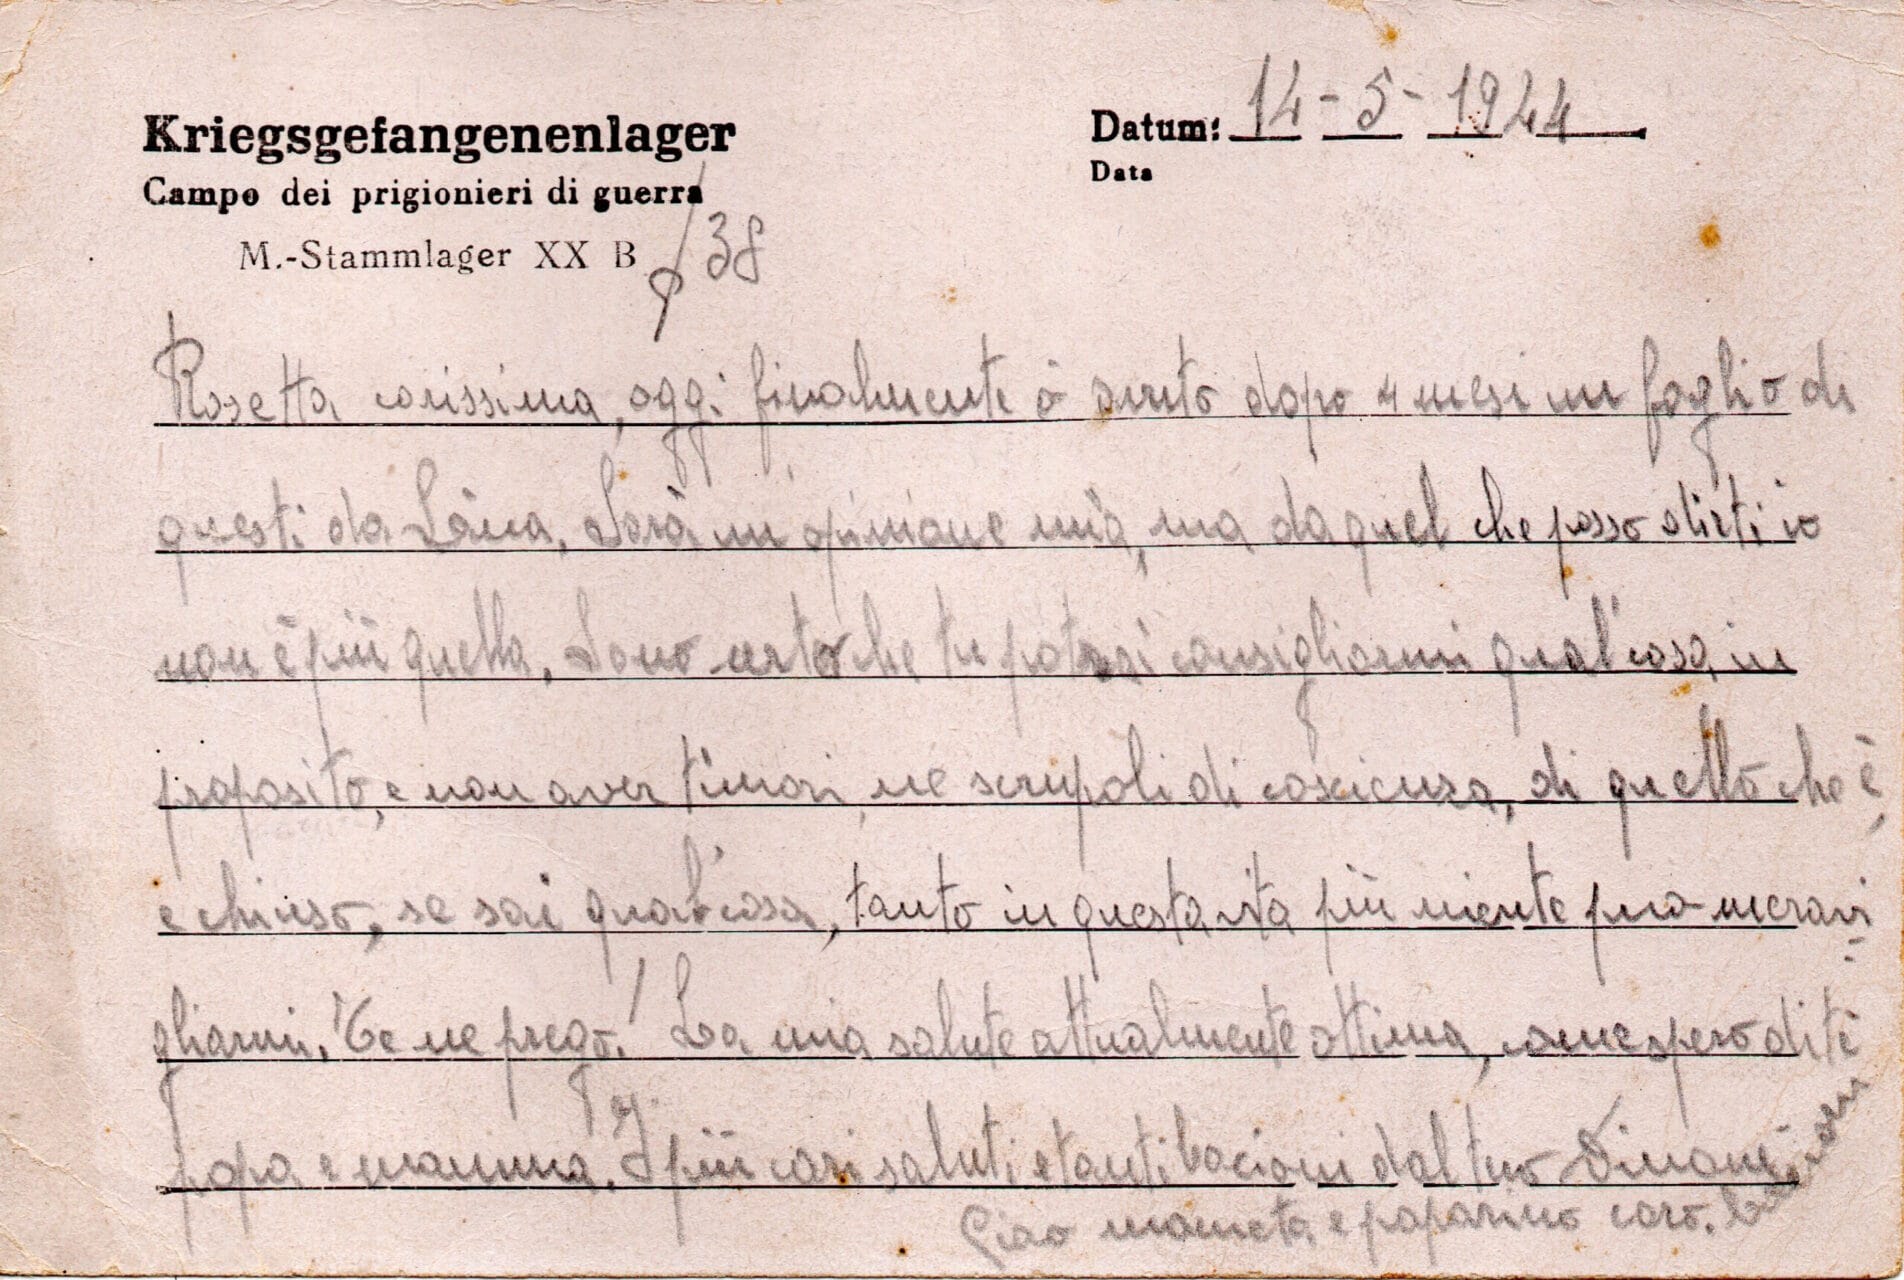 Kriegsgefangenenlager
Campo dei prigionieri di guerra
M.-Stammlager XX B
/38
Datum: 14-5-1944
Data
Rosetta carissima, oggi finalmente ò auto dopo 4 mesi un foglio di
questi da Lina. Sarà un'opinione mia, ma da quel che posso dirti io
non è più quella. Sono certo che tu potrai consigliarmi qual'cosa in
proposito, e non aver timori, ne scrupoli di coscienza, di quello che è,
e chiuso, se sai qual'cosa, tanto in questa vita più niente può meravi=
gliarmi. Te ne prego! La mia salute attualmente ottima, come spero di te
papa e mamma. I più cari saluti e tanti bacioni dal tuo
Ciao mameta e paparino caro. bacioni